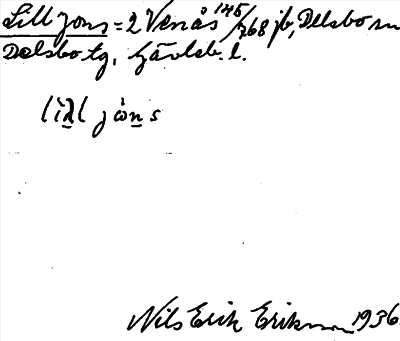 Lill Jons = 2 Venås 145/268 jb, Delsbo sn
Delsbo tg, Gävleb. l.
lìll jòns
Nils Erik Eriksson 1936